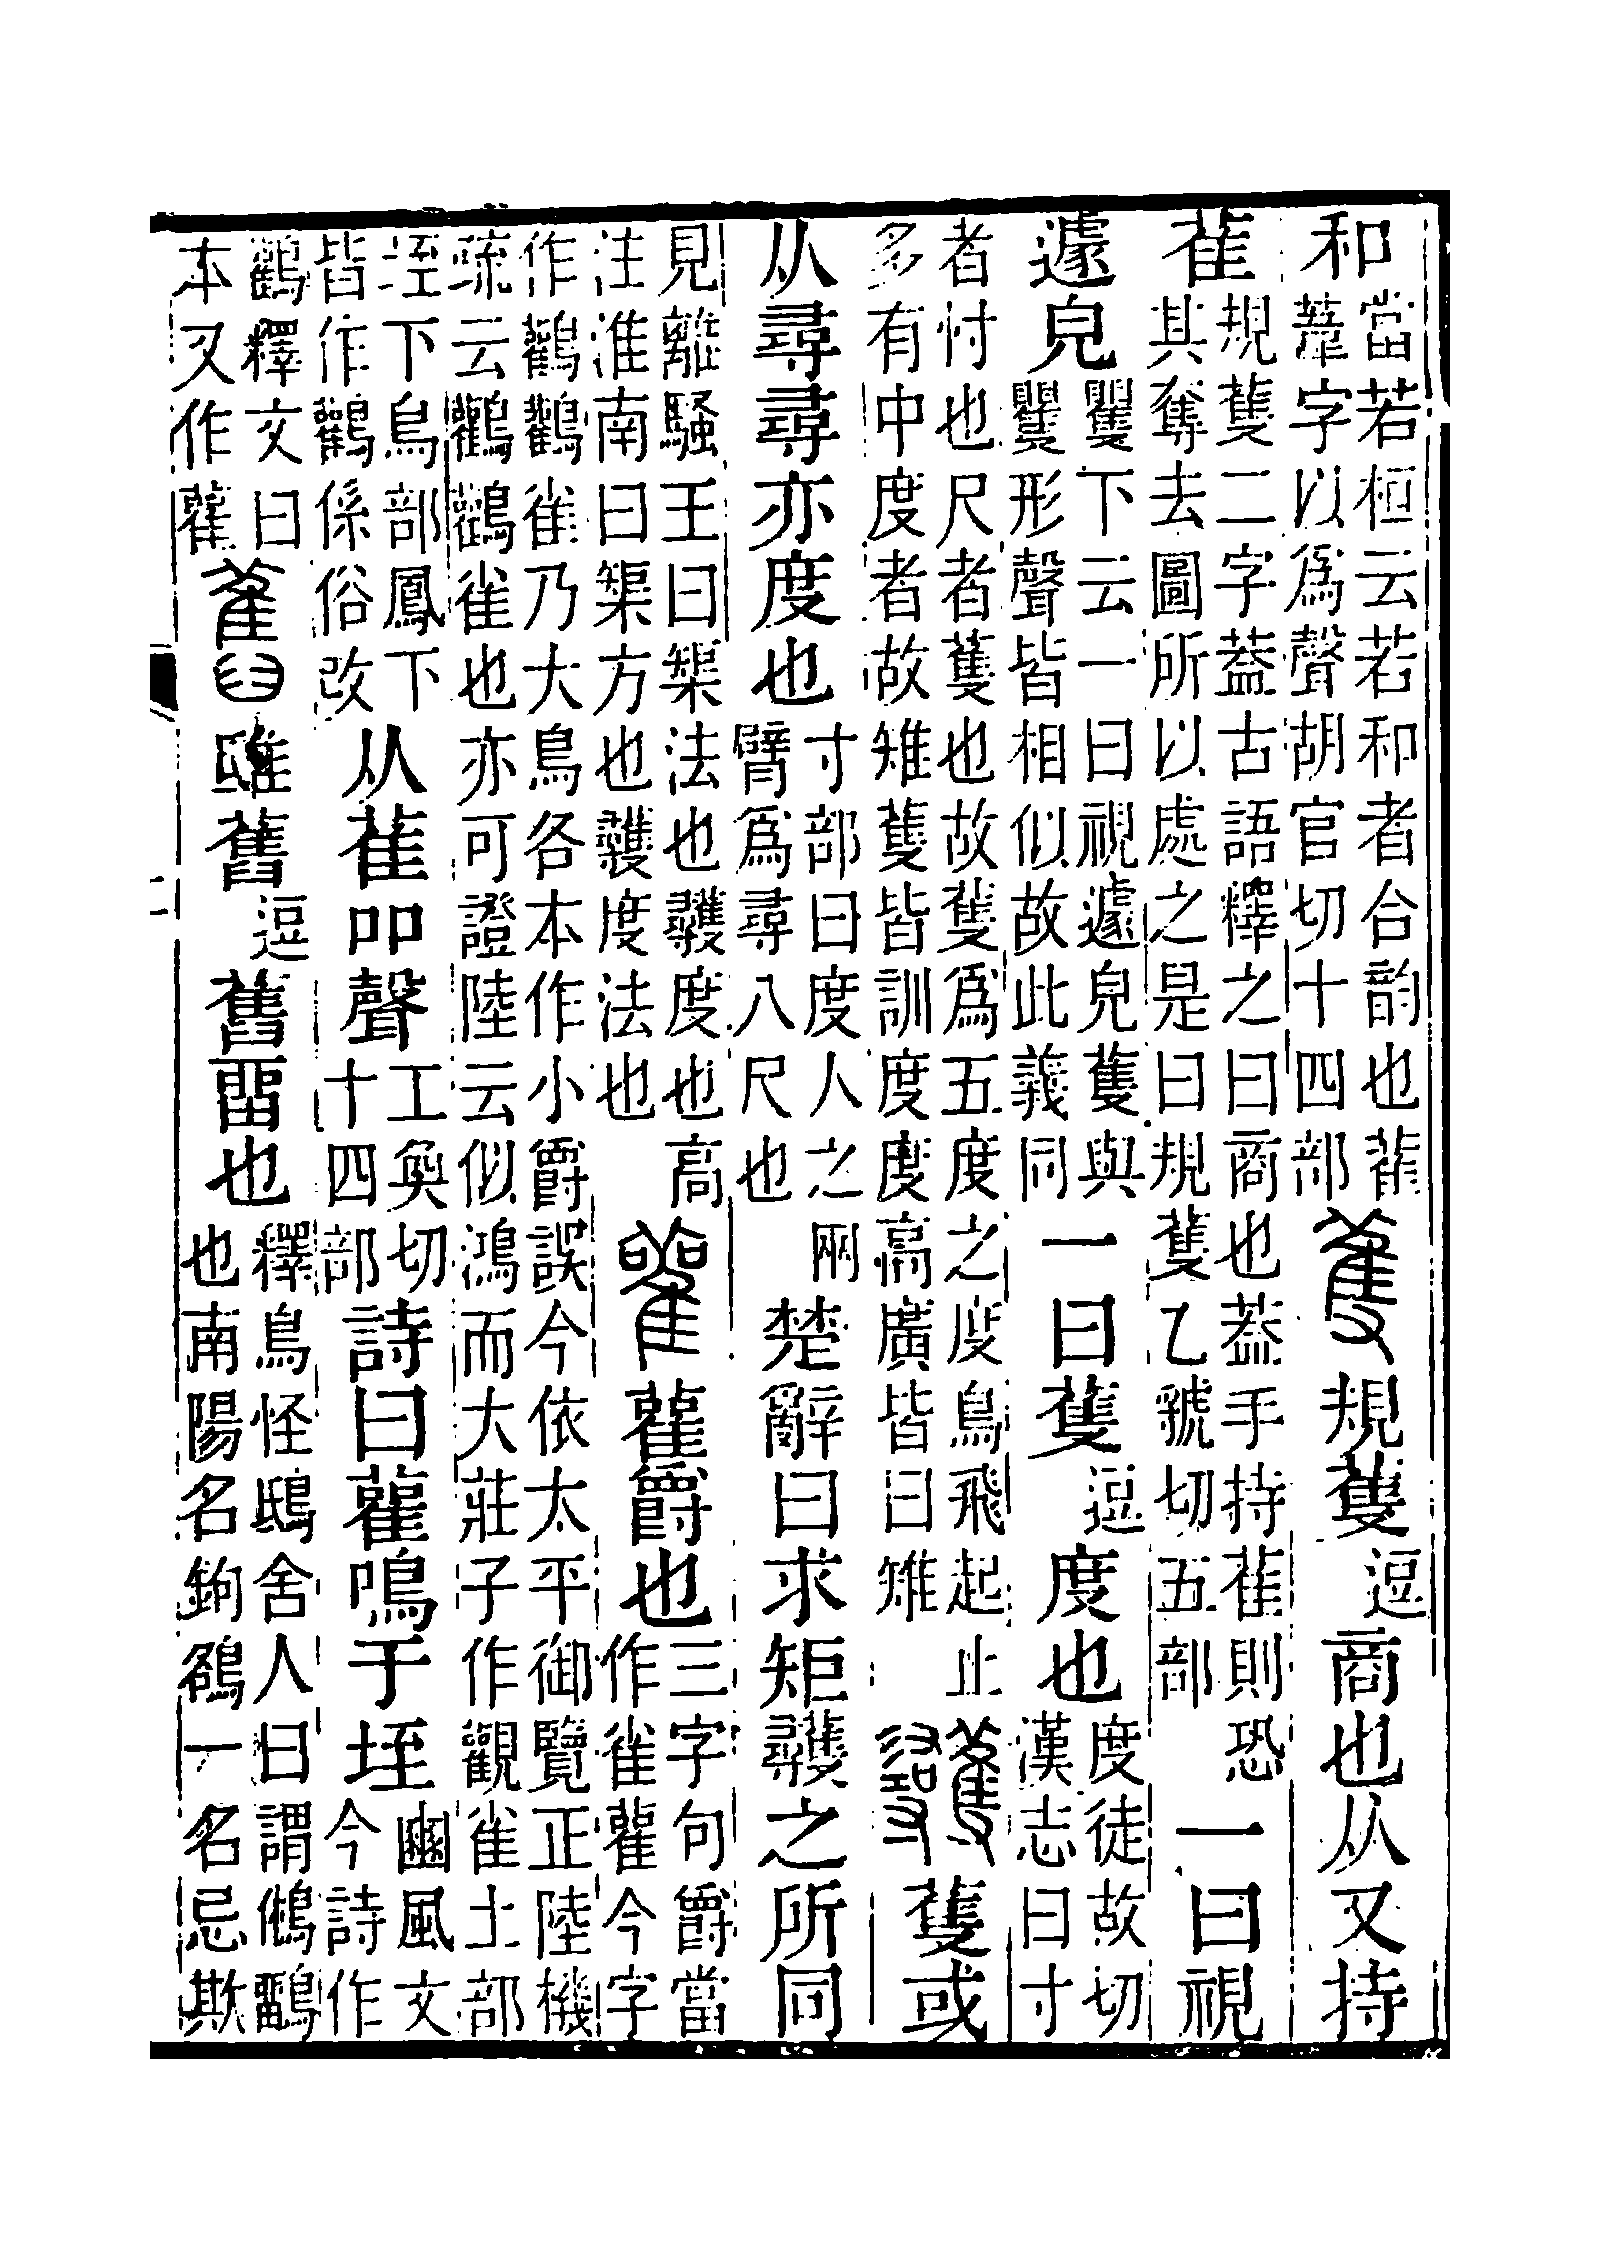 和
當若桓云若和者合韵也萑
葦字以爲聲胡官切十四部
蒦規蒦
逗
商也从又持
雈
規蒦二字葢古語釋之曰商也葢手持雈則恐
其奪去圖所以處之是曰規蒦乙虢切五部
一曰視
遽皃
矍下云一曰視遽皃蒦與
矍形聲皆相似故此義同
一曰蒦
逗
度也
度徒故切
漢志曰寸
者忖也尺者蒦也故蒦爲五度之度鳥飛起止
多有中度者故雉蒦皆訓度度高廣皆曰雉
彠蒦或
从尋尋亦度也
寸部曰度人之兩
臂爲尋八尺也
楚辭曰求矩彠之所同
見離騷王曰榘法也彠度也高
注淮南曰榘方也彠度法也
雚雚爵也
三字句爵當
作雀雚今字
作鸛鸛雀乃大鳥各本作小爵誤今依太平御覽正陸機
疏云鸛鸛雀也亦可證陸云似鴻而大莊子作觀雀土部
垤下鳥部鳳下
皆作鸛係俗改
从雈吅聲
工奐切
十四部
詩曰雚鳴于垤
豳風文
今詩作
鸛釋文曰
本又作雚
舊雖舊
逗
舊畱也
釋鳥怪鴟舍人曰謂鵂鶹
也南陽名鉤鵅一名忌欺